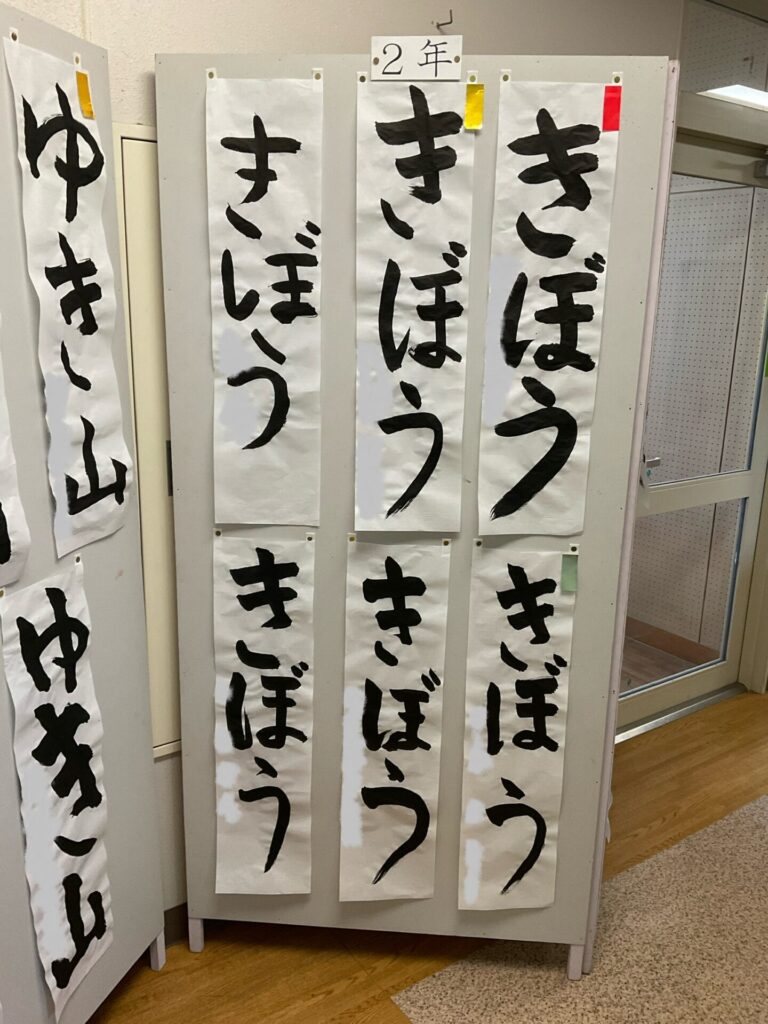 ２年
きぼう
きぼう
きぼう
きぼう
きぼう
きぼう
ゆき山
ゆき山